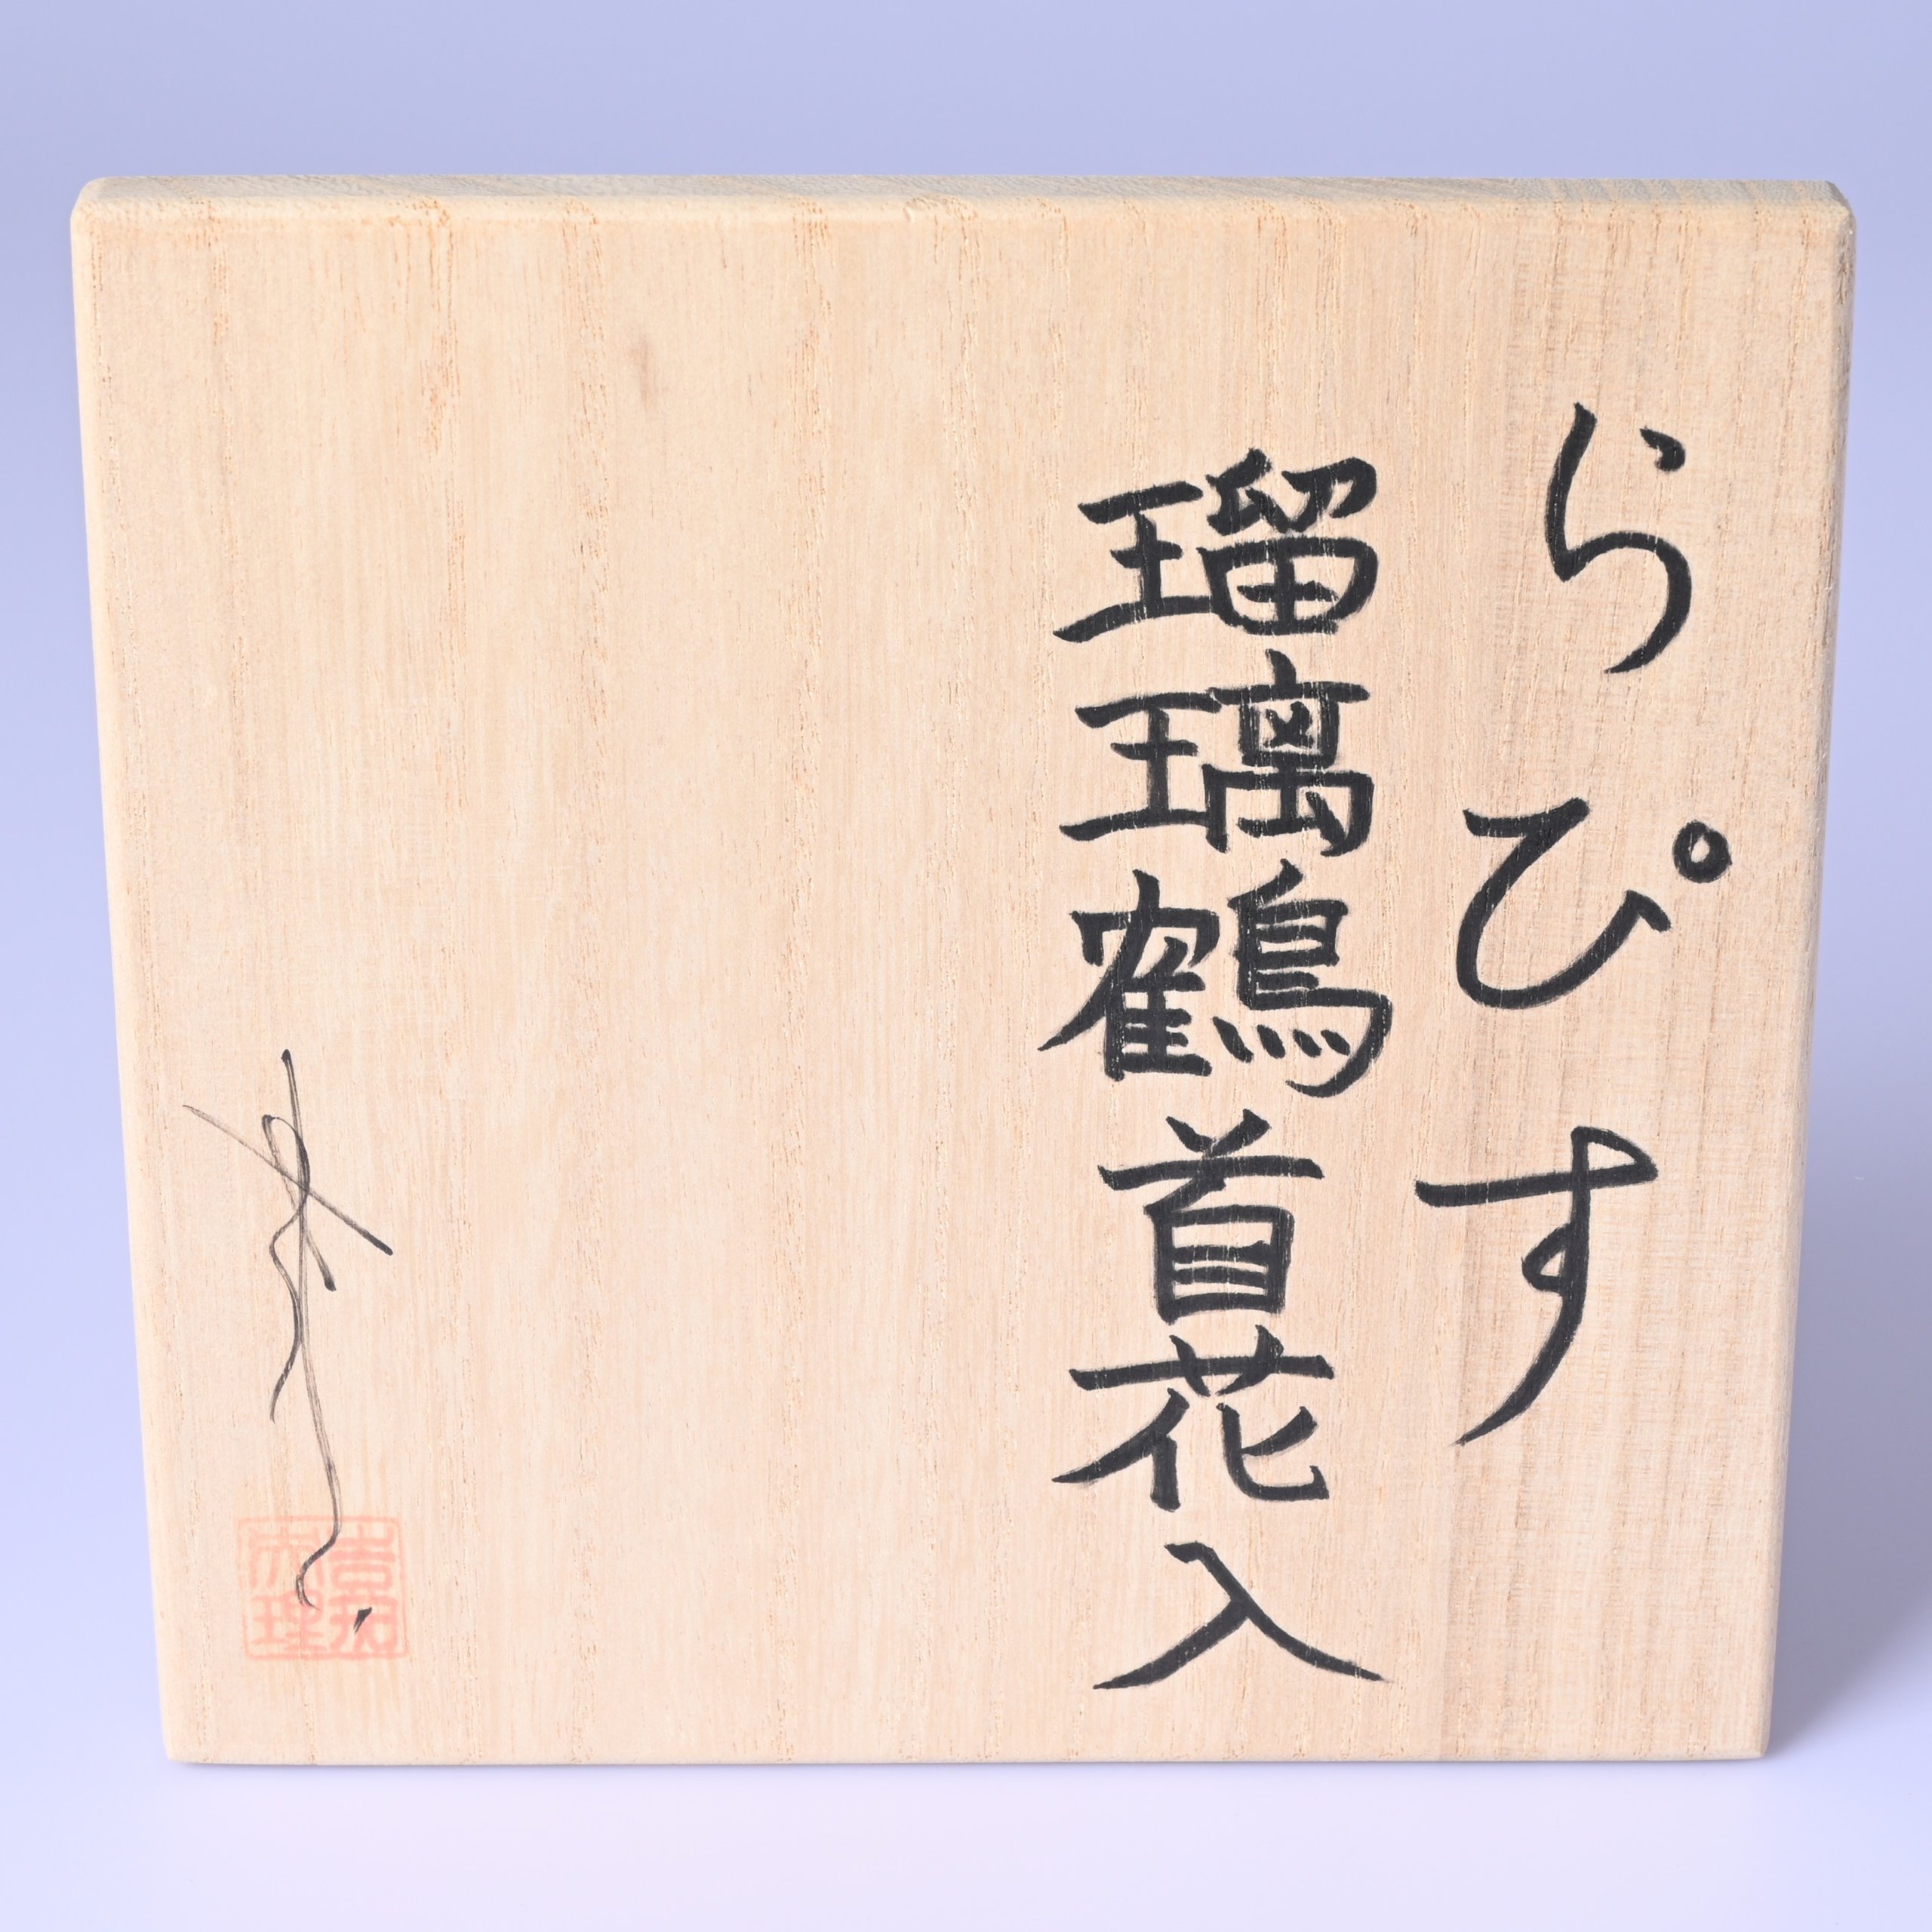 らぴす
瑠璃鶴首花入